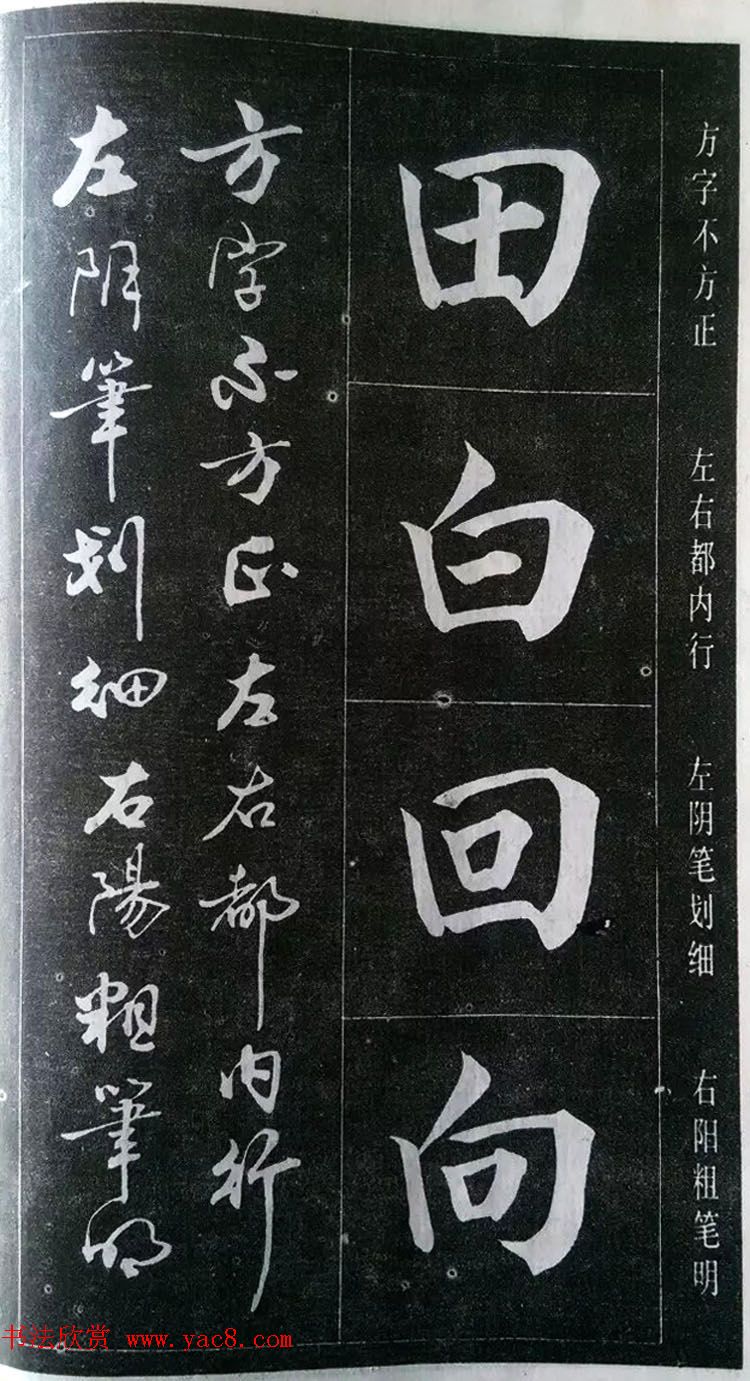 方字不方正 左右都内行 左阴笔划细 右阳粗笔明
田白回向
方字不方正左右都内行
左阴筆划细右陽粗筆明
书法欣赏 www.yac8.com